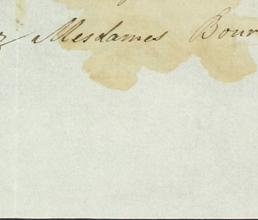 Mesdames Bour